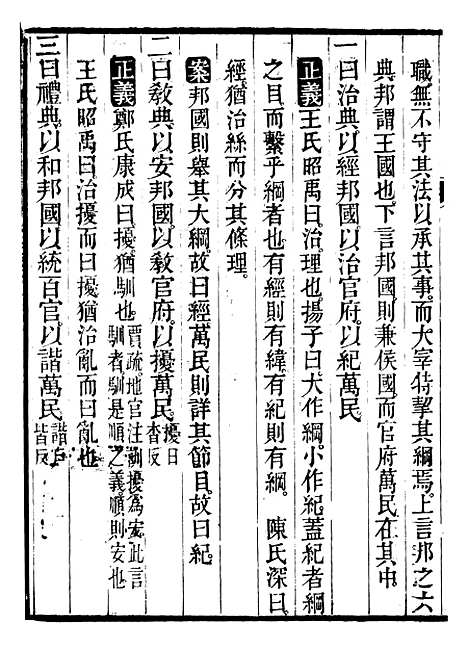 職無不守其法以承其事而大宰特挈其綱焉上言邦之六
典邦謂王國也下言邦國則兼侯國而官府萬民在其中
一曰治典以經邦國以治官府以紀萬民
正義王氏昭禹曰治理也揚子曰大作綱小作紀蓋紀者綱
之目而繫乎綱者也有經則有緯有紀則有綱 陳氏深曰
經猶治絲而分其條理
案邦國則舉其大綱故曰經萬民則詳其節目故曰紀
二曰敎典以安邦國以敎官府以擾萬民擾日杳反
正義鄭氏康成曰擾猶馴也賈疏地官注訓擾爲安此言馴者馴是順之義順則安也
王氏昭禹曰治擾而曰擾猶治亂而曰亂也
三曰禮典以和邦國以統百官以諧萬民諧上皆反